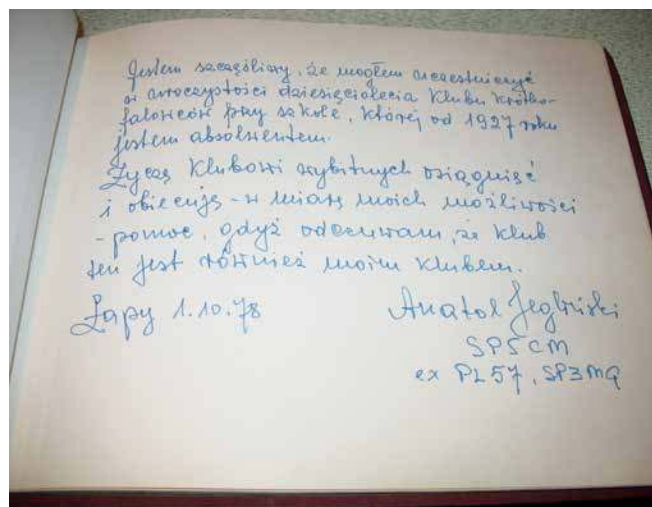 Jestem szczęśliwy, że mogłem uczestniczyć
w uroczystości dziesięciolecia Klubu krótko-
falowców przy szkole, której od 1927 roku
jestem absolwentem.
Życzę Klubowi wybitnych osiągnięć
i obiecuję - w miarę moich możliwości
- pomoc, gdyż odczuwam, że klub
ten jest również moim klubem.
Łapy 1.10.78
Anatol Jegliński
SP5CM
ex PL57, SP3MQ